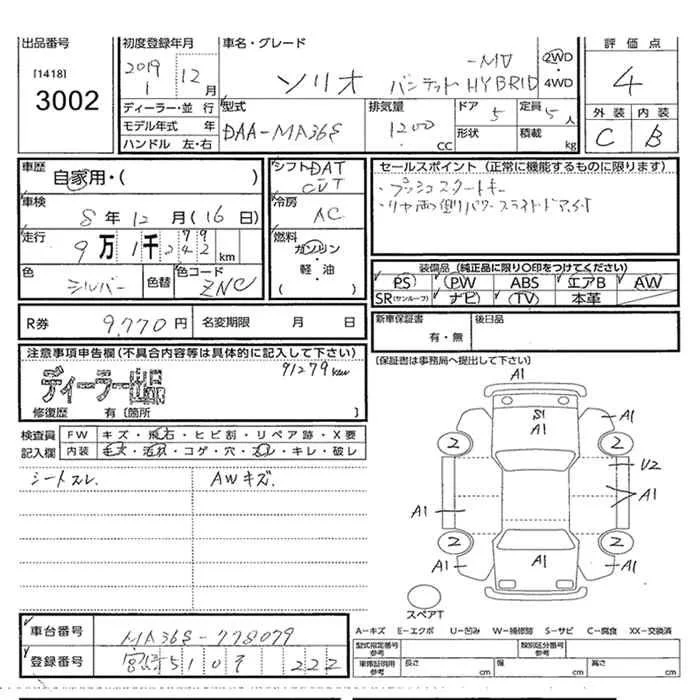 出品番号
[1418]
3002
初度登録年月
2019
1 12月
ディーラー・並行
モデル年式 年
ハンドル 左・右
車名・グレード
ソリオ バンディット HYBRID -MV
2WD
・
4WD
型式
DAA-MA36S
排気量
1200
CC
ドア 5
形状
定員 5人
積載 kg
評価点
4
外装 内装
C B
車歴
自家用・( )
車検
8年 12月(16日)
走行
9万1千2
km
色
シルバー
色替
色コード
ZNC
シフト DAT
CVT
冷房
AC
燃料
ガソリン
軽・油
( )
セールスポイント (正常に機能するものに限ります)
・プッシュスタートキー
・リヤ両側パワースライドドア
装備品 (純正品に限り○印をつけてください)
PS PW ABS エアB AW
SR(サンルーフ) ナビ (TV) 本革
R券 9,770円 名変期限 月 日
新車保証書
有・無
後日品
注意事項申告欄(不具合内容等は具体的に記入して下さい)
91279km
ディーラー
修復歴 有〔箇所 〕
(保証書は事務局へ提出して下さい)
検査員 FW キズ・飛石・ヒビ割・リペア跡・X要
記入欄 内装 毛欠・汚れ・コゲ・穴・スレ・キレ・破レ
シートスレ. AWキズ.
A1
S1
A1
A1
2 2
V2
A1
A1
2 2
A1 A1 A1
スペアT
A-キズ E-エクボ U-凹み W-補修跡 S-サビ C-腐食 XX-交換済
車台番号 MA36S-778079
登録番号 宮崎 510 そ 222
型式指定番号
参考
類別区分番号
参考
車庫証明用
参考
長さ cm
幅 cm
高さ cm